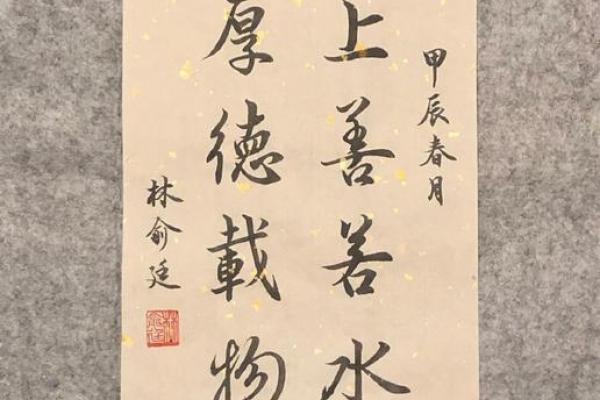 甲辰春月
上善若水
厚德載物
林俞廷